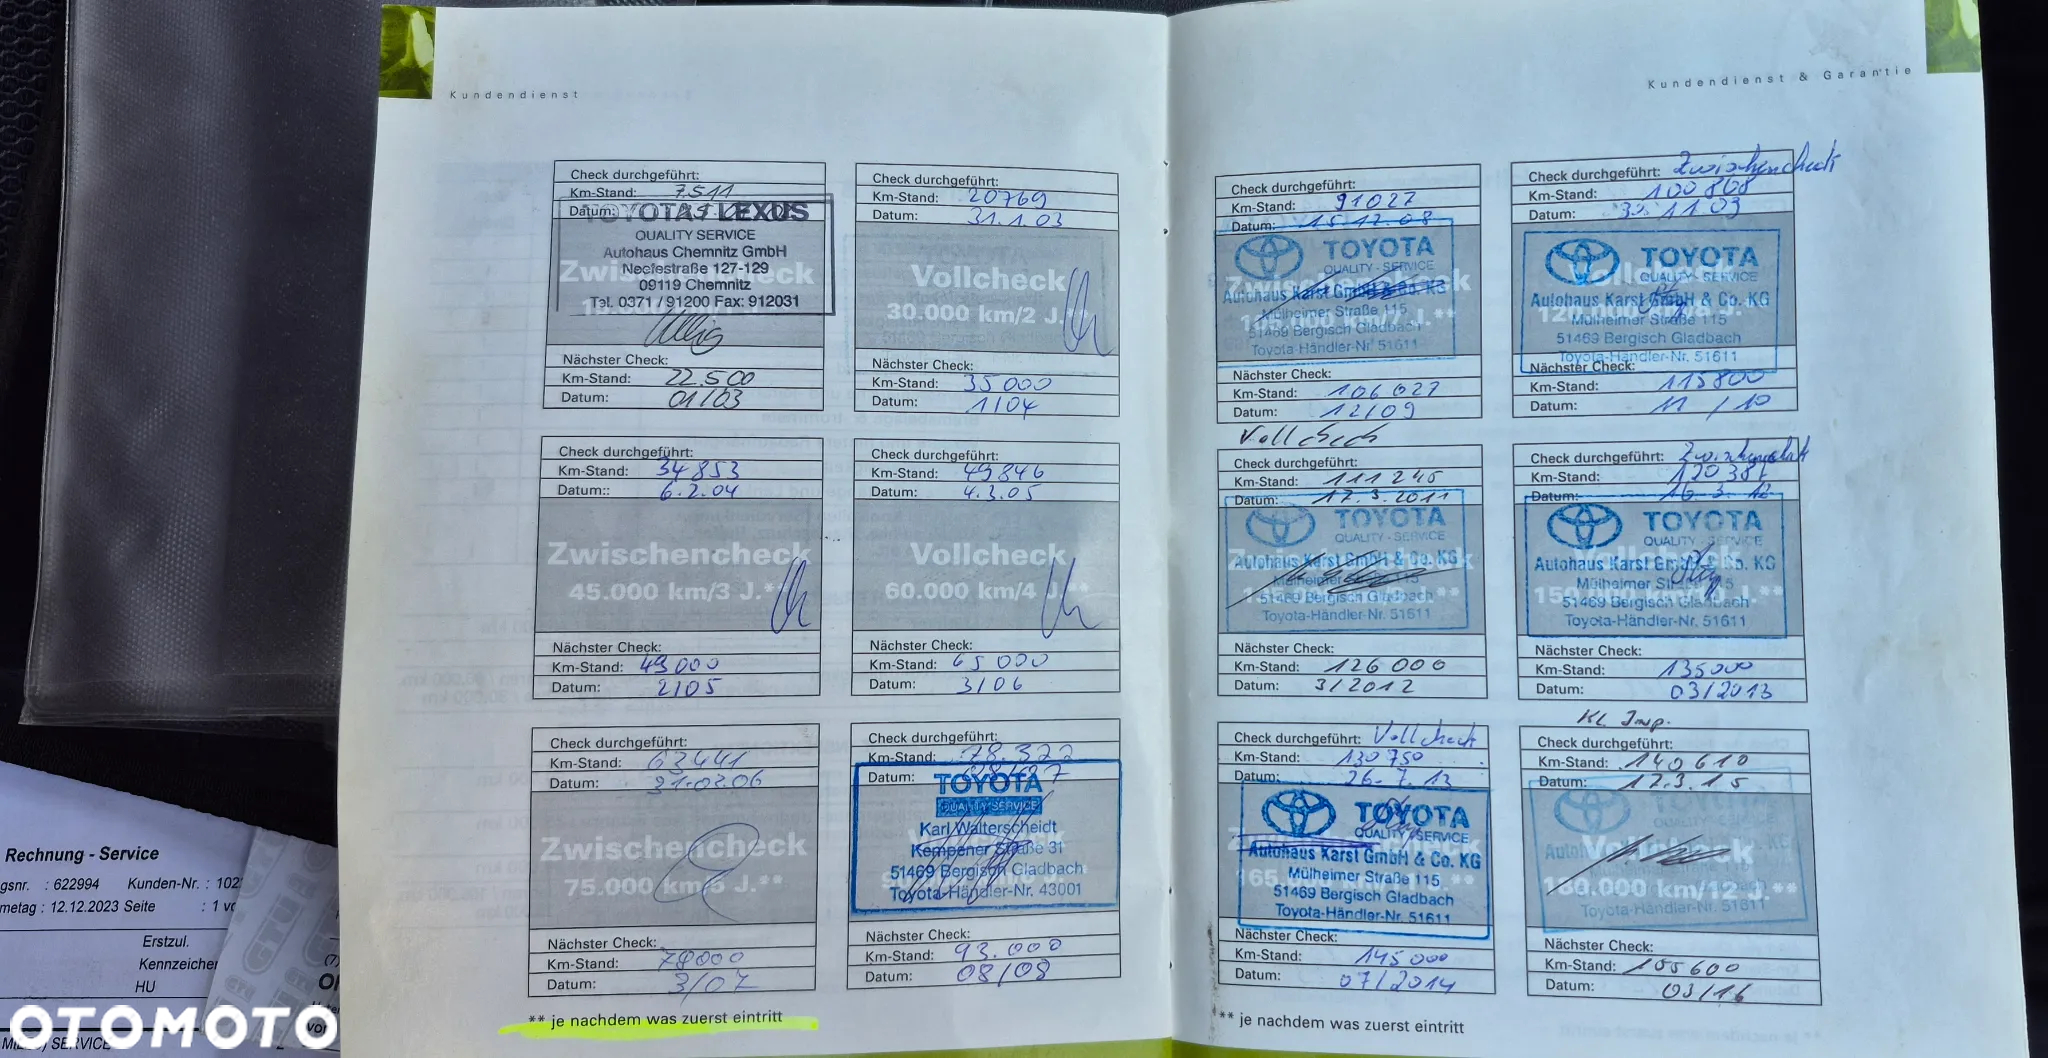 Kundendienst
Check durchgeführt:
Km-Stand: 7511
Datum:
TOYOTA / LEXUS
QUALITY SERVICE
Autohaus Chemnitz GmbH
Neefestraße 127-129
09119 Chemnitz
Tel. 0371 / 91200 Fax: 912031
Zwischencheck
Nächster Check:
Km-Stand: 22.500
Datum: 01/03
Check durchgeführt:
Km-Stand: 20769
Datum: 31.1.03
Vollcheck
30.000 km/2 J.**
Nächster Check:
Km-Stand: 35000
Datum: 1/04
Check durchgeführt:
Km-Stand: 34853
Datum:: 6.2.04
Zwischencheck
45.000 km/3 J.**
Nächster Check:
Km-Stand: 49000
Datum: 2/05
Check durchgeführt:
Km-Stand: 49846
Datum: 4.3.05
Vollcheck
60.000 km/4 J.**
Nächster Check:
Km-Stand: 65000
Datum: 3/06
Check durchgeführt:
Km-Stand: 63441
Datum: 31.03.06
Zwischencheck
75.000 km/5 J.**
Nächster Check:
Km-Stand: 78000
Datum: 3/07
Check durchgeführt:
Km-Stand: 78.322
Datum:
TOYOTA
QUALITY SERVICE
Karl Walterscheidt
Kempener Straße 31
51469 Bergisch Gladbach
Toyota-Händler-Nr. 43001
Nächster Check:
Km-Stand: 93.000
Datum: 08/08
** je nachdem was zuerst eintritt
Kundendienst & Garantie
Check durchgeführt:
Km-Stand: 91027
Datum: 15.12.08
TOYOTA
QUALITY - SERVICE
Autohaus Karst GmbH & Co. KG
Mülheimer Straße 115
51469 Bergisch Gladbach
Toyota-Händler-Nr. 51611
Nächster Check:
Km-Stand: 106027
Datum: 12/09
Check durchgeführt: Zwischencheck
Km-Stand: 100808
Datum: 30.11.09
TOYOTA
QUALITY - SERVICE
Autohaus Karst GmbH & Co. KG
Mülheimer Straße 115
51469 Bergisch Gladbach
Toyota-Händler-Nr. 51611
Vollcheck
120.000 km/8 J.**
Nächster Check:
Km-Stand: 115800
Datum: 11/10
Vollcheck
Check durchgeführt:
Km-Stand: 111245
Datum: 17.3.2011
TOYOTA
QUALITY - SERVICE
Autohaus Karst GmbH & Co. KG
Mülheimer Straße 115
51469 Bergisch Gladbach
Toyota-Händler-Nr. 51611
Nächster Check:
Km-Stand: 126000
Datum: 3/2012
Check durchgeführt: Zwischencheck
Km-Stand: 120381
Datum: 16.3.12
TOYOTA
QUALITY - SERVICE
Autohaus Karst GmbH & Co. KG
Mülheimer Straße 115
51469 Bergisch Gladbach
Toyota-Händler-Nr. 51611
Vollcheck
Nächster Check:
Km-Stand: 135000
Datum: 03/2013
Check durchgeführt: Vollcheck
Km-Stand: 130750
Datum: 26.7.13
TOYOTA
QUALITY SERVICE
Autohaus Karst GmbH & Co. KG
Mülheimer Straße 115
51469 Bergisch Gladbach
Toyota-Händler-Nr. 51611
Nächster Check:
Km-Stand: 145000
Datum: 07/2014
Kl. Insp.
Check durchgeführt:
Km-Stand: 140610
Datum: 17.3.15
Vollcheck
180.000 km/12 J.**
Nächster Check:
Km-Stand: 155600
Datum: 03/16
** je nachdem was zuerst eintritt
Rechnung - Service
gsnr. : 622994 Kunden-Nr. : 102
metag : 12.12.2023 Seite : 1
Erstzul.
Kennzeichen
HU
SERVICE
OTOMOTO